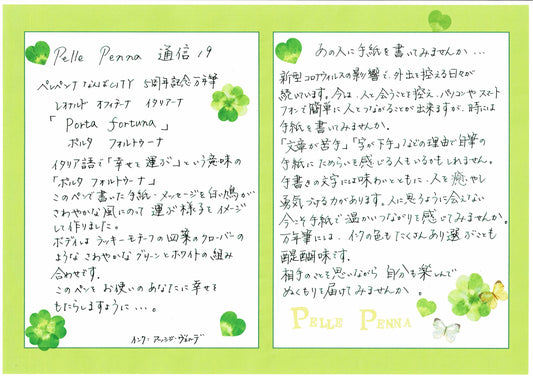 Pelle Penna 通信 19
ペレペンナ なんばCITY 5周年記念万年筆
レオナルド オフィチーナ イタリアーナ
「Porta fortuna」
ポルタ フォルトゥーナ
イタリア語で「幸せを運ぶ」という意味の
「ポルタ フォルトゥーナ」
このペンで書いた手紙・メッセージを白い鳩が
さわやかな風にのって運ぶ様子をイメージ
して作りました。
ボディはラッキーモチーフの四葉のクローバーの
ような さわやかなグリーンとホワイトの組み
合わせです。
このペンをお使いのあなたに幸せを
もたらしますように…。
インク:アレッシオ・ヴェルデ
あの人に手紙を書いてみませんか…
新型コロナウィルスの影響で、外出を控える日々が
続いています。今は、人と会うことを控え、パソコンやスマート
フォンで簡単に人とつながることが出来ますが、時には
手紙を書いてみませんか。
「文章が苦手」「字が下手」などの理由で自筆の
手紙にためらいを感じる人もいるかもしれません。
手書きの文字には味わいとともに、人を癒やし
勇気づける力があります。人に思うように会えない
今こそ手紙で温かいつながりを感じてみませんか。
万年筆には、インクの色もたくさんあり選ぶことも
醍醐味です。
相手のことを思いながら 自分も楽しんで
ぬくもりを届けてみませんか。
PELLE PENNA